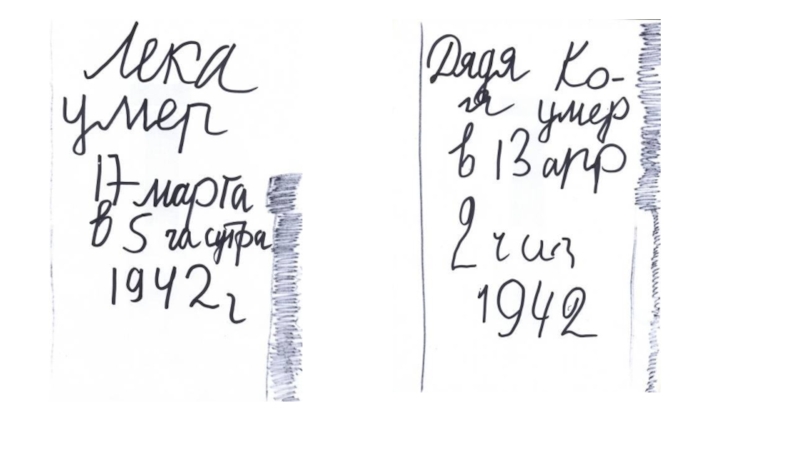 Лека
умер
17 марта
в 5 час утра
1942 г
Дядя Ко-
ля умер
в 13 апр
2 ч из
1942